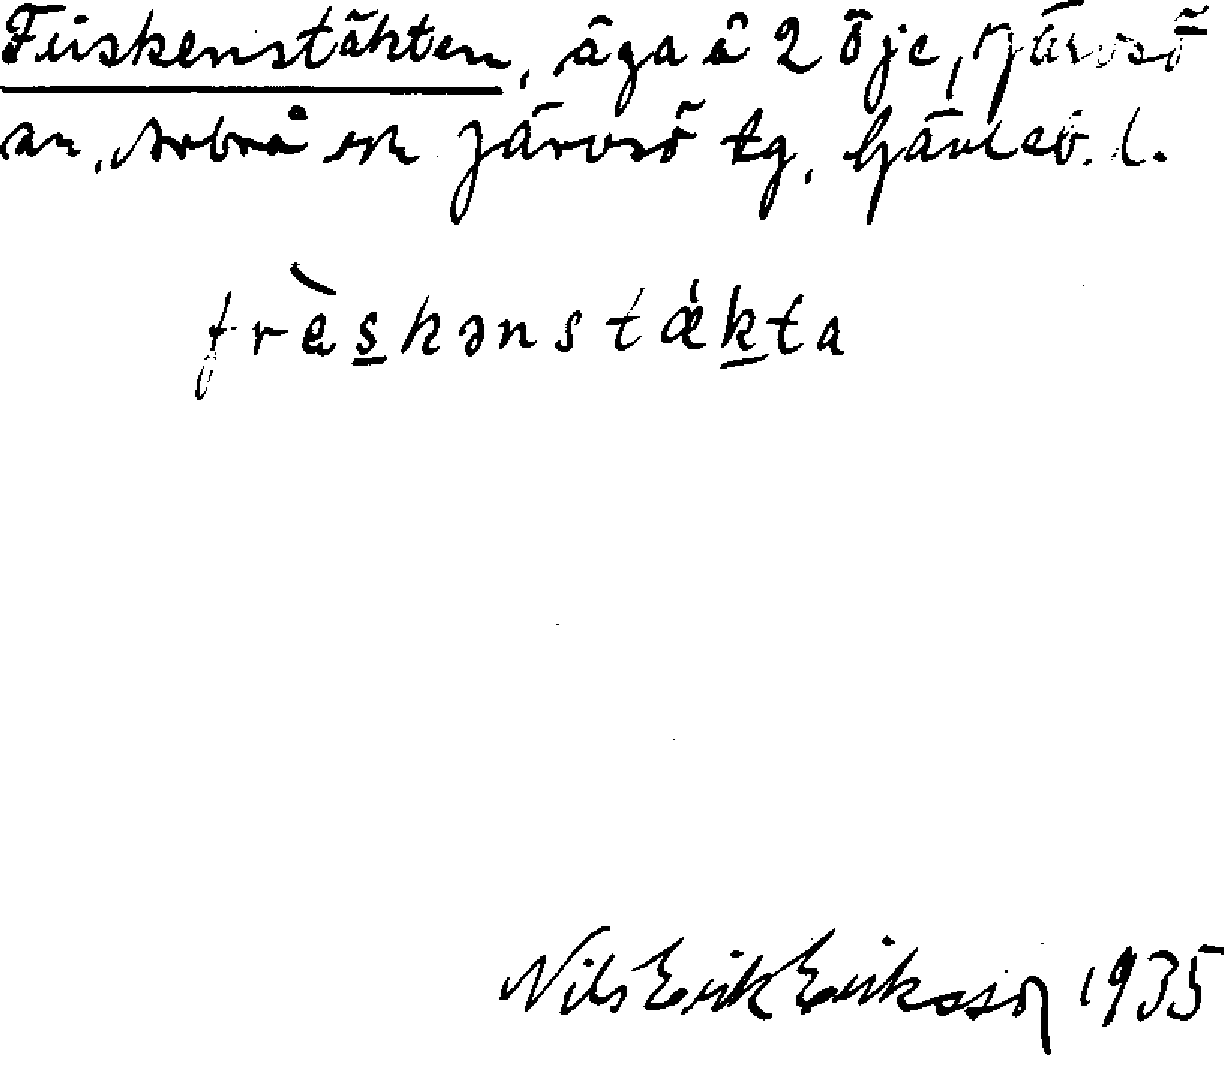 Friskenstäkten, äga å 2 Öje, Järvsö
sn, Arbrå och Järvsö tg, Gävleb. l.
frèskənstǽkta
Nils Erik Eriksson 1935